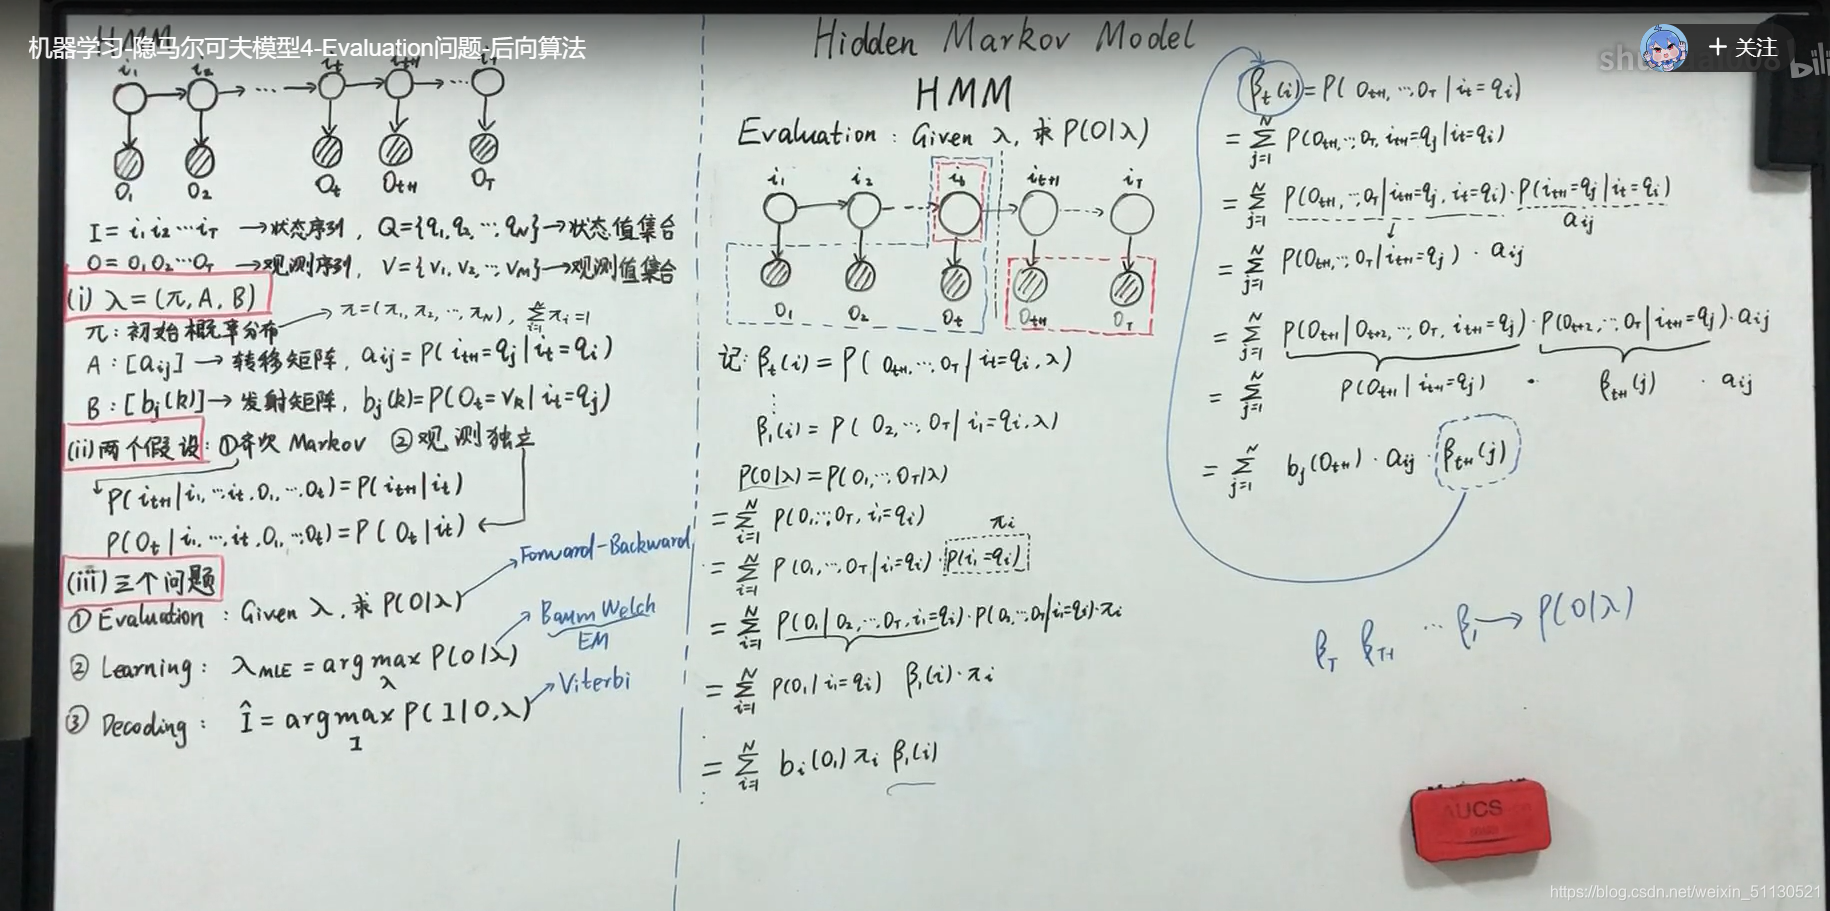 机器学习-隐马尔可夫模型4-Evaluation问题-后向算法
+ 关注
HMM
i₁ i₂ iₜ iₜ₊₁ i_T
...
O₁ O₂ Oₜ Oₜ₊₁ O_T
I = i₁ i₂ ··· i_T → 状态序列, Q = {q₁, q₂, ···, q_N} → 状态值集合
O = O₁ O₂ ··· O_T → 观测序列, V = {v₁, v₂, ···, v_M} → 观测值集合
(i) λ = (π, A, B)
π: 初始概率分布 → π = (π₁, π₂, ···, π_N), Σᵢ₌₁ᴺ πᵢ = 1
A: [aᵢⱼ] → 转移矩阵, aᵢⱼ = P(iₜ₊₁ = qⱼ | iₜ = qᵢ)
B: [bⱼ(k)] → 发射矩阵, bⱼ(k) = P(Oₜ = v_k | iₜ = qⱼ)
(ii) 两个假设: ① 齐次 Markov ② 观测独立
P(iₜ₊₁ | i₁, ···, iₜ, O₁, ···, Oₜ) = P(iₜ₊₁ | iₜ)
P(Oₜ | i₁, ···, iₜ, O₁, ···, Oₜ) = P(Oₜ | iₜ)
(iii) 三个问题
Forward-Backward
① Evaluation: Given λ, 求 P(O|λ)
Baum Welch
EM
② Learning: λ_MLE = arg max P(O|λ)
λ
Viterbi
③ Decoding: Î = arg max P(I|O, λ)
I
Hidden Markov Model
HMM
Evaluation: Given λ, 求 P(O|λ)
i₁ i₂ iₜ iₜ₊₁ i_T
O₁ O₂ Oₜ Oₜ₊₁ O_T
记: βₜ(i) = P(Oₜ₊₁, ···, O_T | iₜ = qᵢ, λ)
⋮
β₁(i) = P(O₂, ···, O_T | i₁ = qᵢ, λ)
P(O|λ) = P(O₁, ···, O_T | λ)
= Σᵢ₌₁ᴺ P(O₁, ···, O_T, i₁ = qᵢ)
πᵢ
= Σᵢ₌₁ᴺ P(O₁, ···, O_T | i₁ = qᵢ) · P(i₁ = qᵢ)
= Σᵢ₌₁ᴺ P(O₁ | O₂, ···, O_T, i₁ = qᵢ) · P(O₂, ···, O_T | i₁ = qᵢ) · πᵢ
= Σᵢ₌₁ᴺ P(O₁ | i₁ = qᵢ) β₁(i) · πᵢ
= Σᵢ₌₁ᴺ bᵢ(O₁) πᵢ β₁(i)
βₜ(i) = P(Oₜ₊₁, ···, O_T | iₜ = qᵢ)
= Σⱼ₌₁ᴺ P(Oₜ₊₁, ···, O_T, iₜ₊₁ = qⱼ | iₜ = qᵢ)
= Σⱼ₌₁ᴺ P(Oₜ₊₁, ···, O_T | iₜ₊₁ = qⱼ, iₜ = qᵢ) · P(iₜ₊₁ = qⱼ | iₜ = qᵢ)
↓ aᵢⱼ
= Σⱼ₌₁ᴺ P(Oₜ₊₁, ···, O_T | iₜ₊₁ = qⱼ) · aᵢⱼ
= Σⱼ₌₁ᴺ P(Oₜ₊₁ | Oₜ₊₂, ···, O_T, iₜ₊₁ = qⱼ) · P(Oₜ₊₂, ···, O_T | iₜ₊₁ = qⱼ) · aᵢⱼ
= Σⱼ₌₁ᴺ P(Oₜ₊₁ | iₜ₊₁ = qⱼ) · βₜ₊₁(j) · aᵢⱼ
= Σⱼ₌₁ᴺ bⱼ(Oₜ₊₁) · aᵢⱼ · βₜ₊₁(j)
β_T β_T-1 ··· β₁ → P(O|λ)
AUCS
https://blog.csdn.net/weixin_51130521